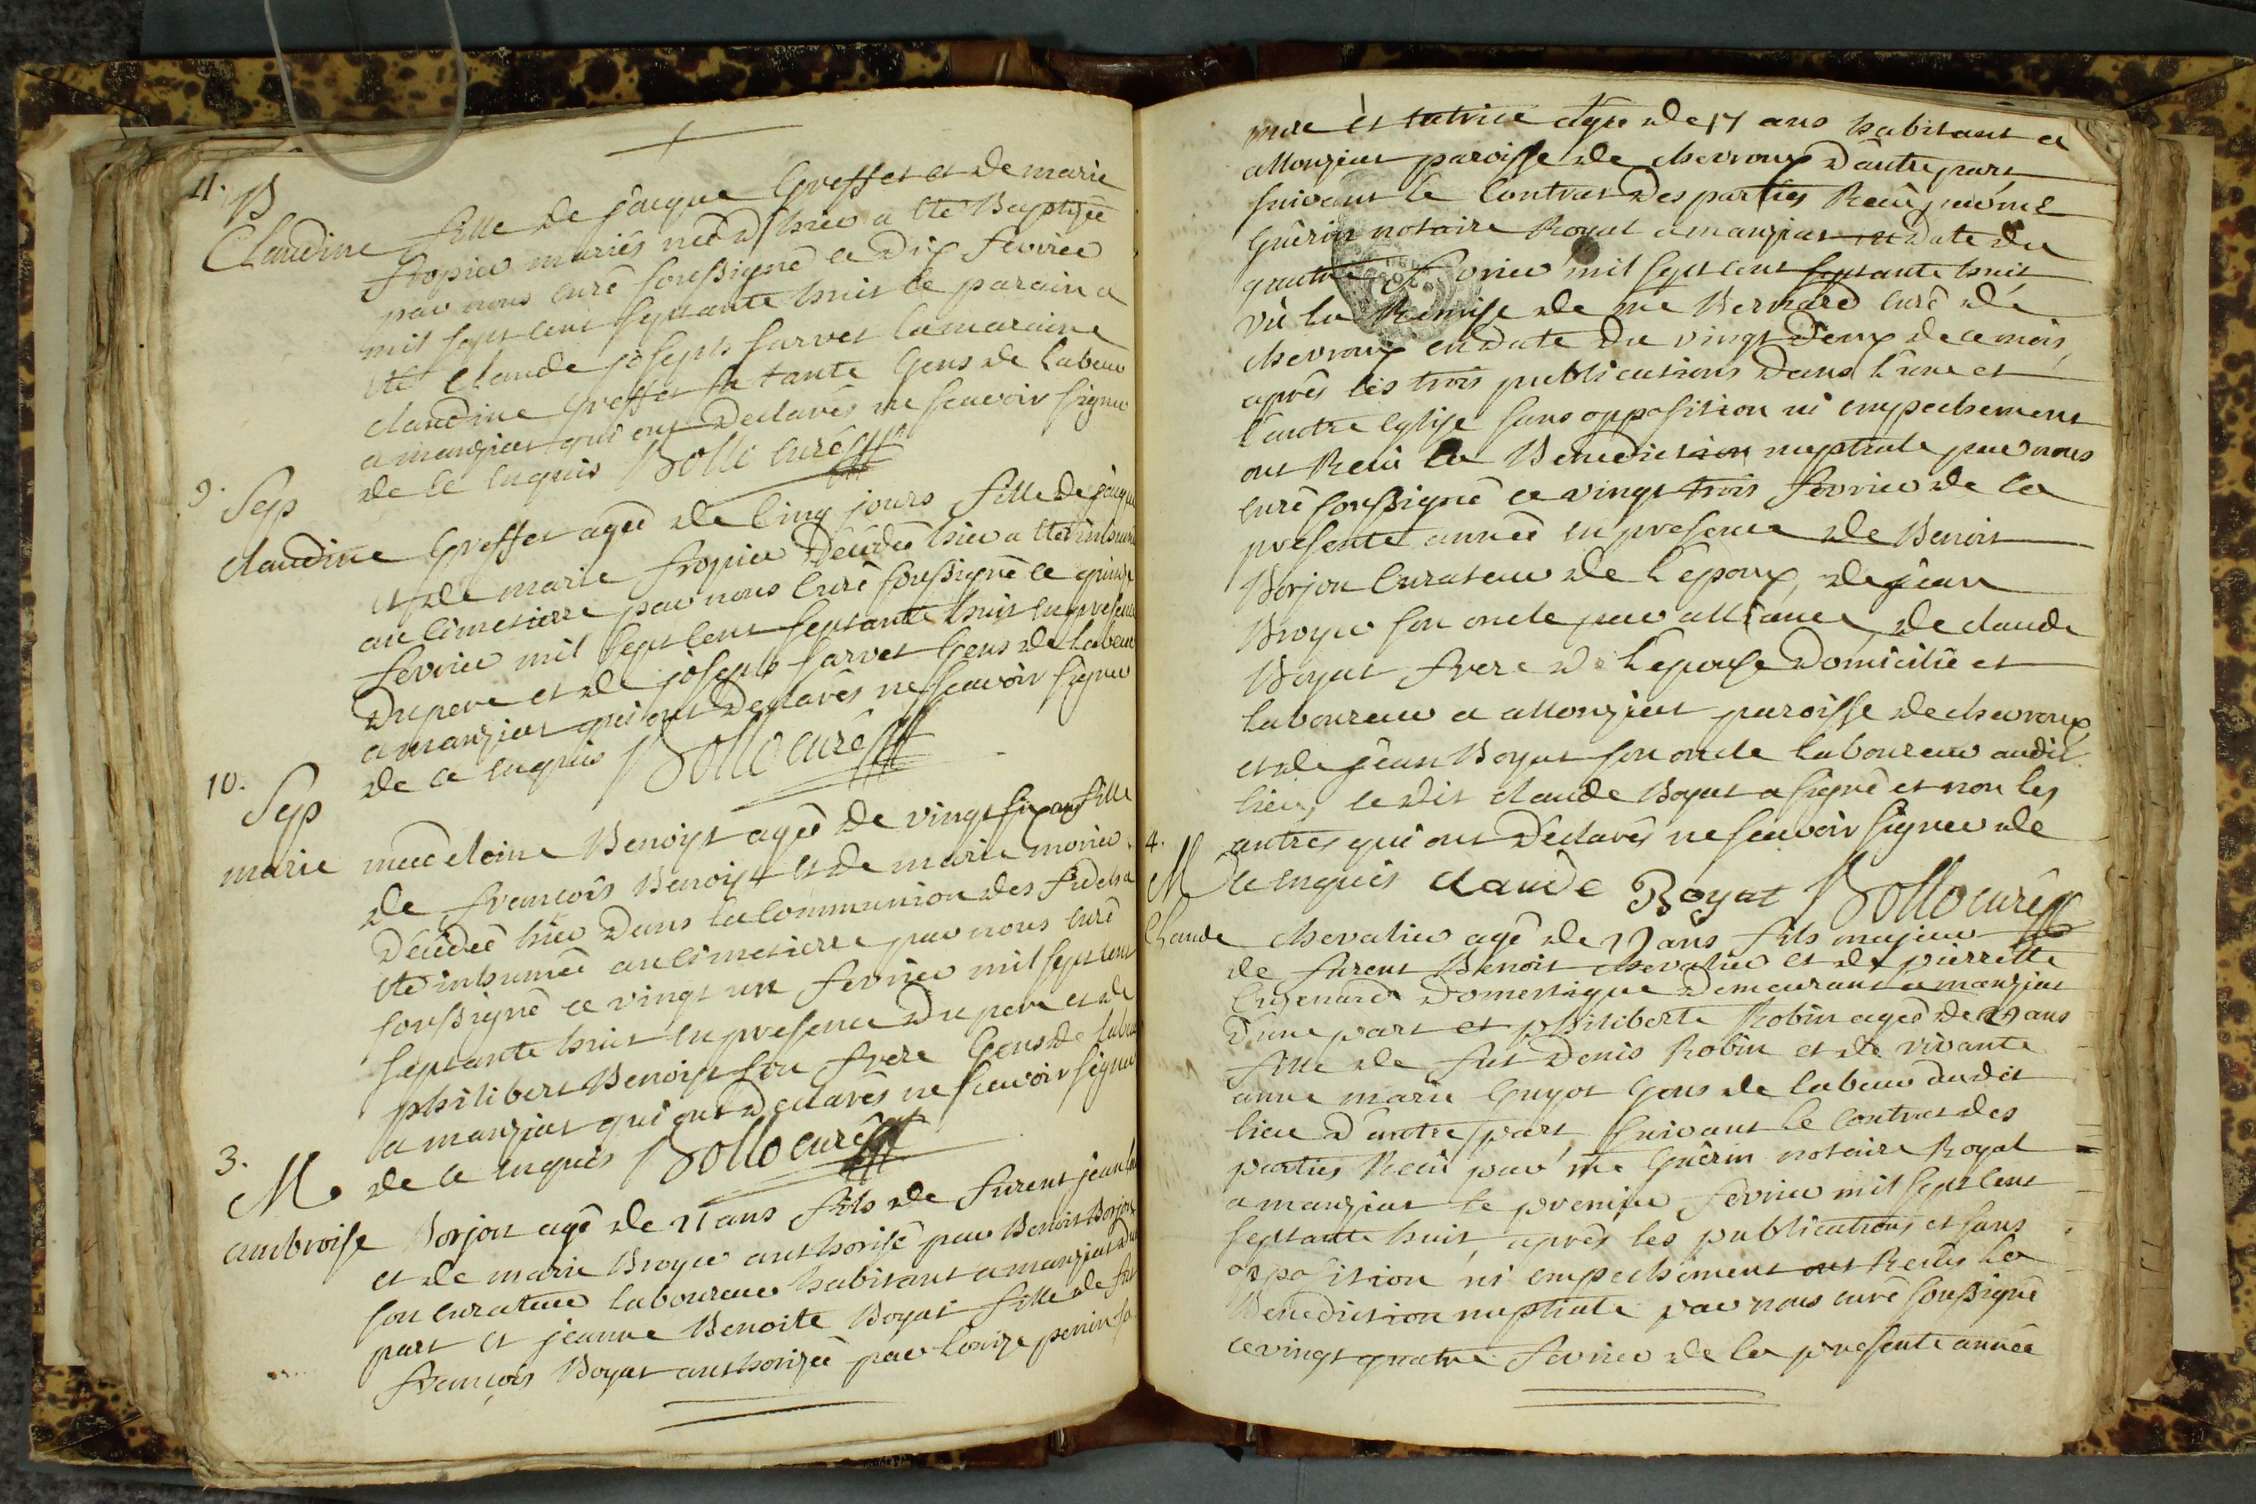 11. B
Claudine fille de jacque Greffet et de marie
fropier mariés née d'hier a été Baptizée
par nous curé soussigné ce dix fevrier
mil sept cent septante huit le parain a
été Claude joseph farvet la maraine
claudine Greffet sa tante Gens de Labeur
a manziat qui ont Declarés ne scavoir signer
de ce enquis Bollo curé
9. Sep
claudine Greffet ageé de cinq jours fille de jacque
et de marie fropier décédée hier a été inhumée
au cimetierre par nous curé soussigné ce quinze
fevrier mil sept cent septante huit en presence
du pere et de joseph farvet Gens de Labeur
a manziat qui ont declarés ne scavoir signer
de ce enquis Bollo curé
10. Sep
marie madeleine Benoist ageé de vingt six ans fille
de françois Benoist et de marie monier
décédée hier dans la communion des fidels a
été inhumée au cimetierre par nous curé
soussigné ce vingt un fevrier mil sept cent
septante huit en presence du pere et de
philibert Benoist son frere Gens de Labeur
a manziat qui ont declarés ne scavoir signer
de ce enquis Bollo curé
3. M
ambroise Borjon agé de 21 ans fils de furent jean
et de marie Broyer authorisé par Benoit Borjon
son curateur laboureur habitant a manziat d'une
part et jeanne Benoite Boyat fille de fut
françois Boyat authorizée par Louize perrin sa
mere et tutrice agée de 17 ans habitant a
allonziat paroisse de chevroux d'autre part
suivant le contrat des parties Recû par me
Guérin notaire Royal a manziat en date du
quatre fevrier mil sept cent septante huit
vû la Remise de me Bernard curé de
chevroux en date du vingt deux de ce mois,
aprés les trois publications dans l'une et
l'autre eglise sans opposition ni empechement
ont Recû la Benediction nuptiale par nous
curé soussigné ce vingt trois fevrier de la
presente année en presence de Benoit
Borjon curateur de l'epoux, de jean
Broyer son oncle par alliance, de claude
Boyat frere de l'epouse domicilié et
laboureur a allonziat paroisse de chevroux
et de jean Boyat son oncle laboureur audit
lieu, le dit claude Boyat a signé et non les
autres qui ont déclarés ne scavoir signer de
ce enquis claude Boyat Bollo curé
4. M
Claude chevalier agé de 29 ans fils majeur
de furent Benoit chevalier et de pierrette
domestique demeurant a manziat
d'une part et philiberte Robin ageé de 29 ans
fille de fut Denis Robin et de vivante
anne marie Guyot Gens de labeur dudit
lieu d'autre part, suivant le contrat des
parties Recû par me Guérin notaire Royal
a manziat le premier fevrier mil sept cent
septante huit, aprés les publications et sans
opposition ni empechement ont Recus la
Benediction nuptiale par nous curé soussigné
ce vingt quatre fevrier de la presente année